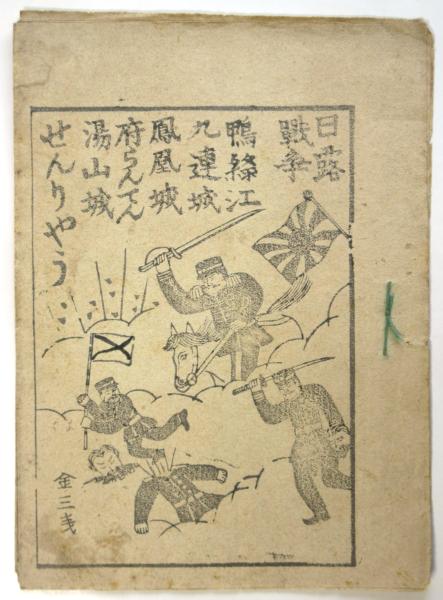 日露
戰争
鴨綠江
九連城
鳳凰城
府らんてん
湯山城
せんりやう
金三戋